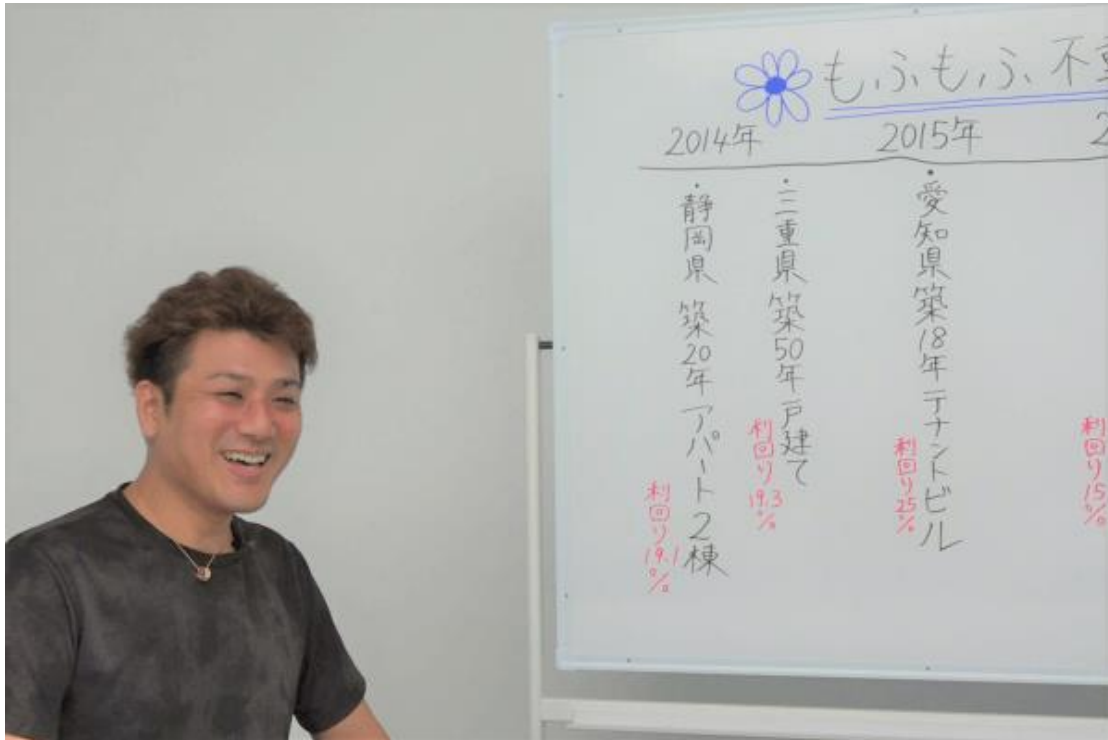 もふもふ不
2014年
2015年
2
・静岡県 築20年アパート2棟
利回り19.1%
・三重県 築50年戸建て
利回り19.3%
・愛知県築18年テナントビル
利回り25%
利回り15%